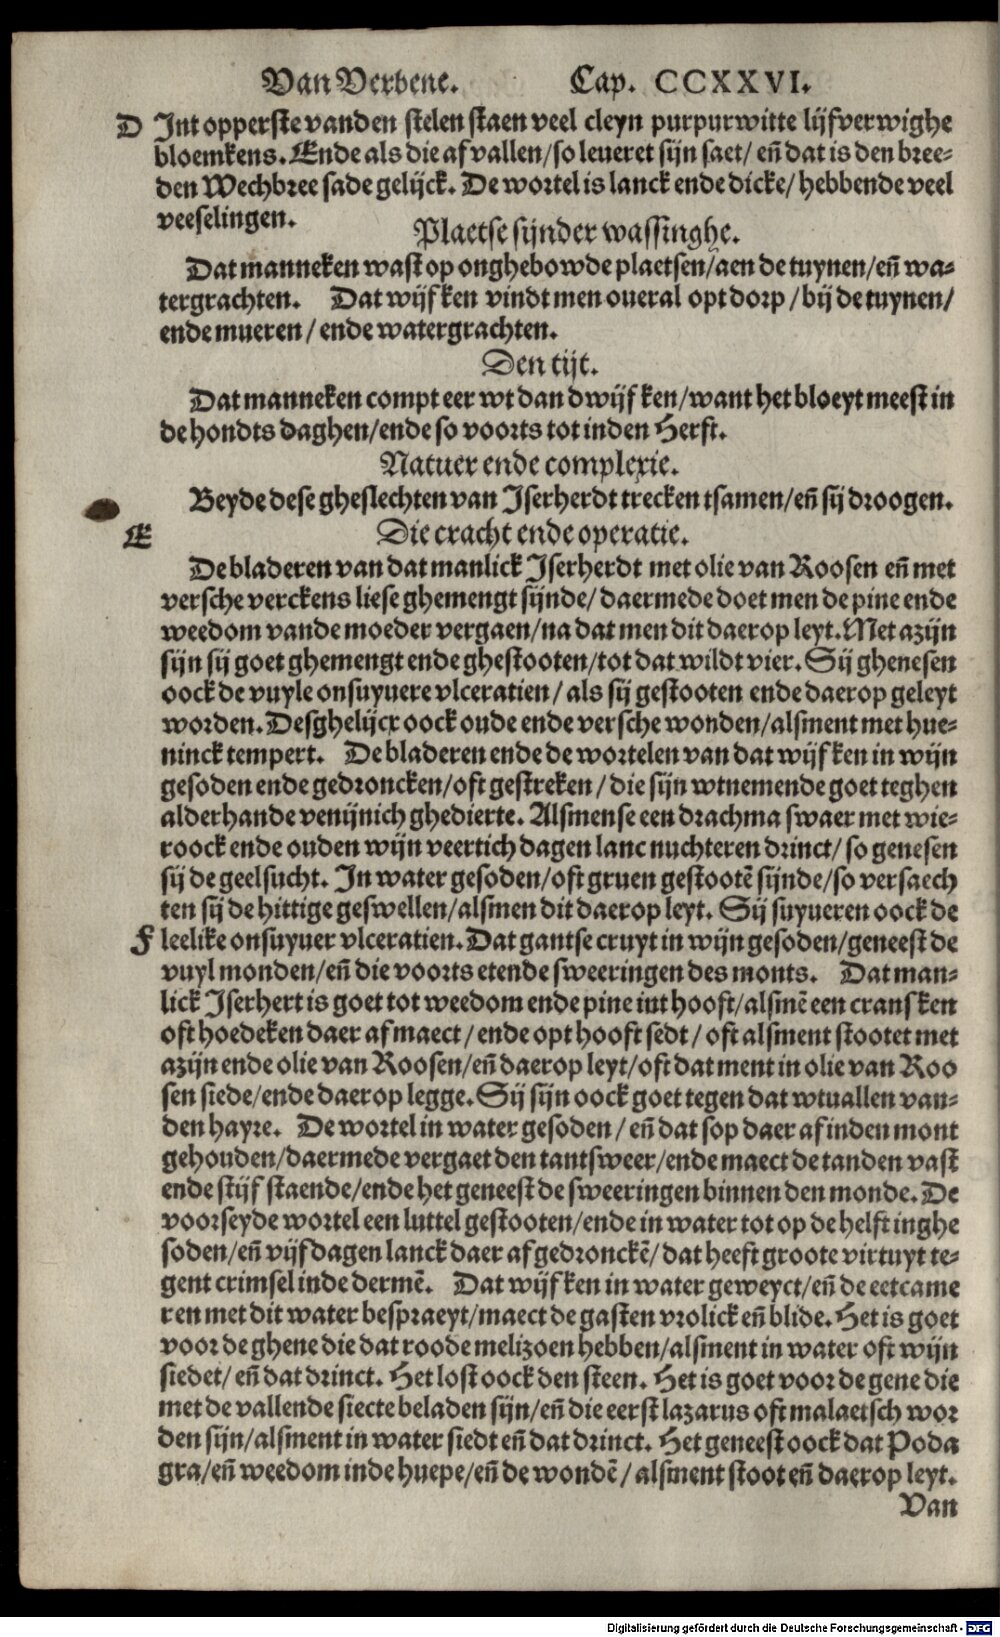 Van Verbene. Cap. CCXXVI.
D Int opperste vanden stelen staen veel cleyn purpur witte lijfverwighe
bloemkens. Ende als die af vallen/so leueret sijn saet/ en̄ dat is den bree-
den Wechbree sade gelijck. De wortel is lanck ende dicke/ hebbende veel
veeselingen.
Plaetse sijnder wassinghe.
Dat manneken wast op onghebowde plaetsen/aen de tuynen/en̄ wa-
tergrachten. Dat wijfken vindt men oueral opt dorp/bij de tuynen/
ende mueren/ende watergrachten.
Den tijt.
Dat manneken compt eer wt dan dwijfken/want het bloeyt meest in
de hondts daghen/ende so voorts tot inden Herfst.
Natuer ende complexie.
Beyde dese gheslechten van Iserherdt trecken tsamen/en̄ sij droogen.
E Die cracht ende operatie.
De bladeren van dat manlick Iserherdt met olie van Roosen en̄ met
versche verckens liese ghemengt sijnde/daermede doet men de pine ende
weedom vande moeder vergaen/na dat men dit daer op leyt. Met azijn
sijn sij goet ghemengt ende ghestooten/tot dat wildt vier. Sij ghenesen
oock de vuyle onsuyuere vlceratien/als sij gestooten ende daer op geleyt
worden. Desghelijcx oock oude ende versche wonden/alsment met hue-
ninck tempert. De bladeren ende de wortelen van dat wijfken in wijn
gesoden ende gedroncken/oft gestreken/die sijn wtnemende goet teghen
alderhande venijnich ghedierte. Alsmense een drachma swaer met wie-
roock ende ouden wijn veertich dagen lanc nuchteren drinct/so genesen
sij de geelsucht. In water gesoden/oft gruen gestootē sijnde/so versaech
ten sij de hittige geswellen/alsmen dit daer op leyt. Sij suyueren oock de
F leelike onsuyuer vlceratien. Dat gantse cruyt in wijn gesoden/geneest de
vuyl monden/en̄ die voorts etende sweeringen des monts. Dat man-
lick Iserhert is goet tot weedom ende pine int hooft/alsmē een cransken
oft hoedeken daer af maect/ende opt hooft sedt/oft alsment stootet met
azijn ende olie van Roosen/en̄ daer op leyt/oft dat ment in olie van Roo
sen siede/ende daer op legge. Sij sijn oock goet tegen dat wtuallen van-
den hayre. De wortel in water gesoden/en̄ dat sop daer af inden mont
gehouden/daermede vergaet den tantsweer/ende maect de tanden vast
ende stijf staende/ende het geneest de sweeringen binnen den monde. De
voorseyde wortel een luttel gestooten/ende in water tot op de helft inghe
soden/en̄ vijf dagen lanck daer af gedronckē/dat heeft groote virtuyt te-
gent crimsel inde dermē. Dat wijfken in water geweyct/en̄ de eetcame
ren met dit water bespraeyt/maect de gasten vrolick en̄ blide. Het is goet
voor de ghene die dat roode melizoen hebben/alsment in water oft wijn
siedet/en̄ dat drinct. Het lost oock den steen. Het is goet voor de gene die
met de vallende siecte beladen sijn/en̄ die eerst lazarus oft malaetsch wor
den sijn/alsment in water siedt en̄ dat drinct. Het geneest oock dat Poda
gra/en̄ weedom inde huepe/en̄ de wondē/alsment stoot en̄ daer op leyt.
Van
Digitalisierung gefördert durch die Deutsche Forschungsgemeinschaft - DFG